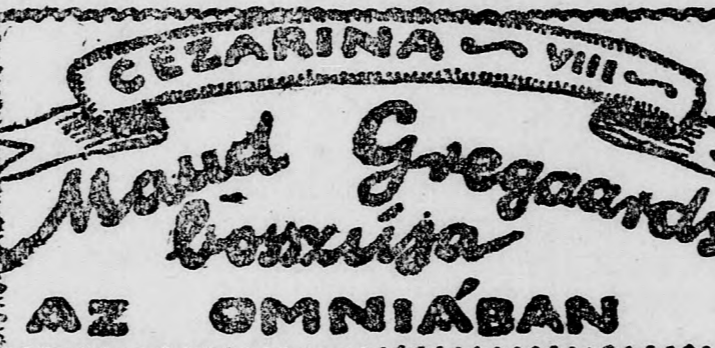 CEZARINA ~ VIII ~
Maud Gregaards
bosszúja
AZ OMNIÁBAN